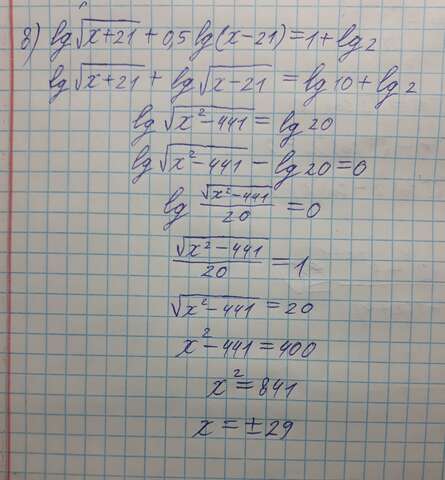 8) lg√(x+21) + 0,5 lg(x-21) = 1 + lg2
lg√(x+21) + lg√(x-21) = lg10 + lg2
lg√(x²-441) = lg20
lg√(x²-441) - lg20 = 0
lg √(x²-441)/20 = 0
√(x²-441)/20 = 1
√(x²-441) = 20
x²-441 = 400
x² = 841
x = ±29